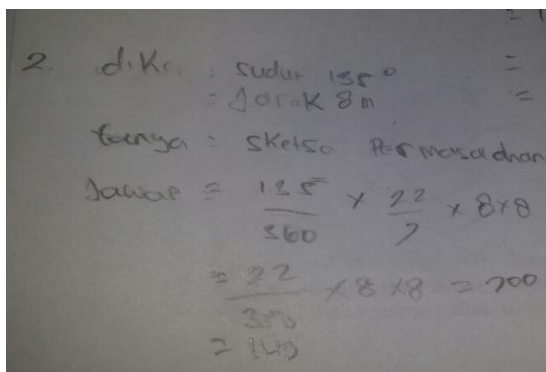 2. dik : sudut 135°
= Jarak 8 m
tanya : Sketsa Permasalahan
Jawab = 135/360 × 22/7 × 8×8
= 22/350 × 8 × 8 = 200